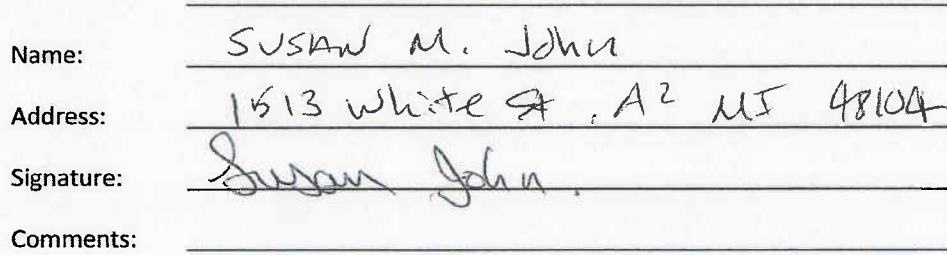 Name: SUSAN M. John
Address: 1513 White St, A² MI 48104
Signature: Susan John.
Comments: